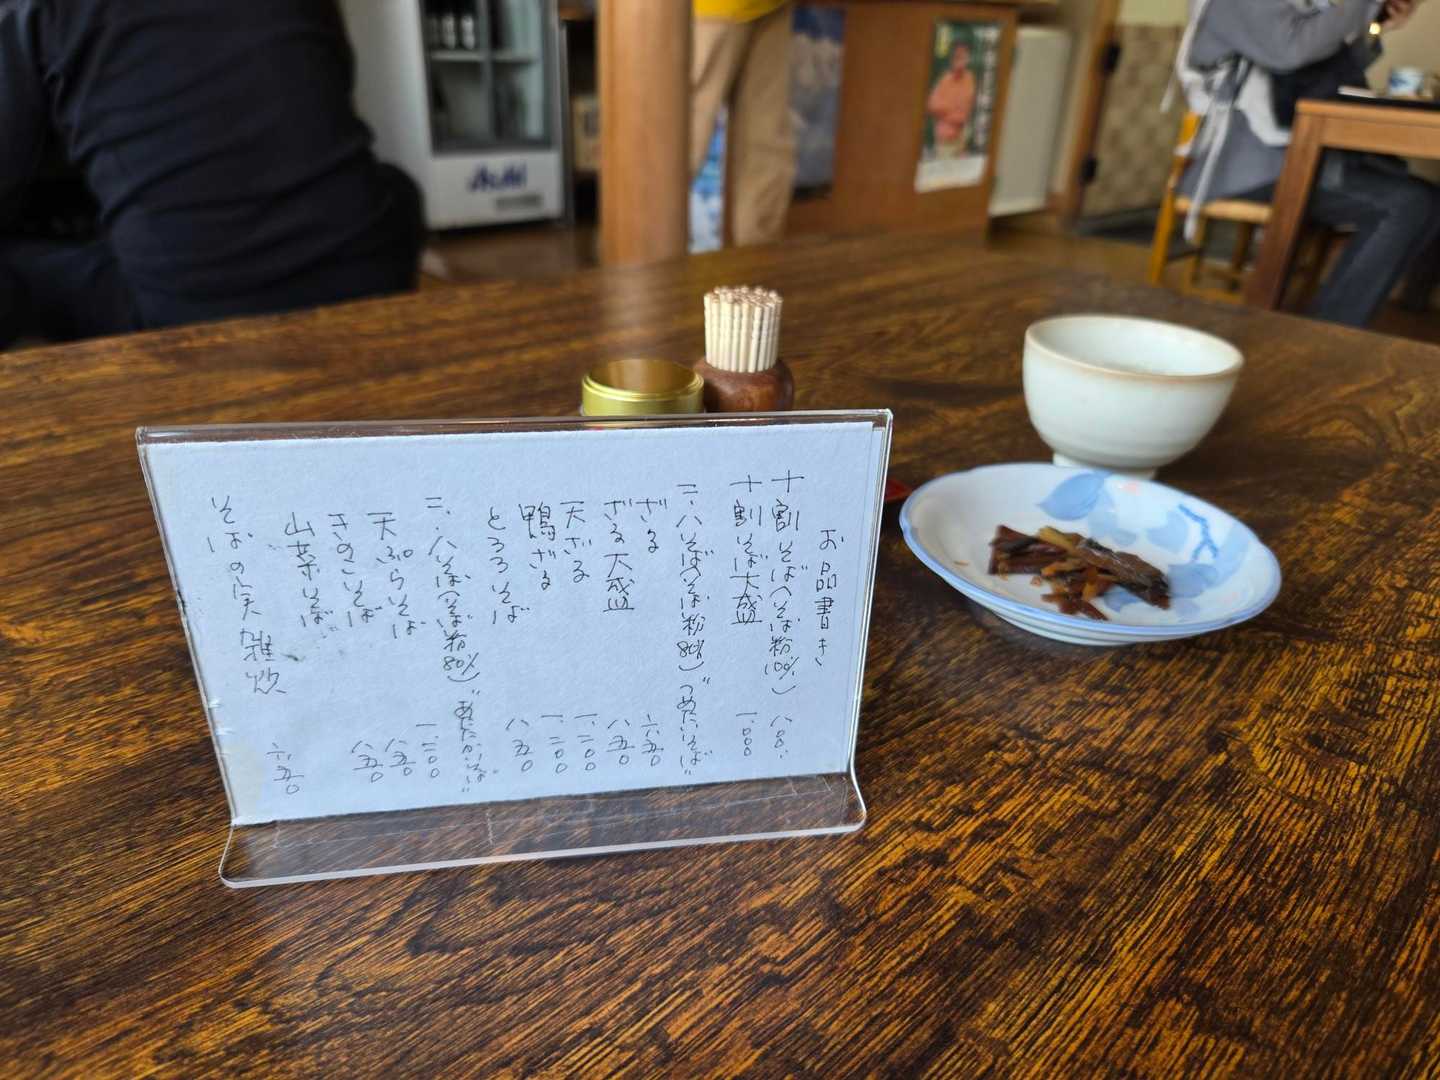 お品書き
十割そば(そば粉100%) 八〇〇
十割そば大盛 一、〇〇〇
二・八そば(そば粉80%)"つめたいそば"
ざる 六五〇
ざる大盛 八五〇
天ざる 一、二〇〇
鴨ざる 一、二〇〇
とろろそば 八五〇
二・八そば(そば粉80%)"あたたかいそば"
天ぷらそば 一、二〇〇
きのこそば 八五〇
山菜そば 八五〇
そばの実雑炊 六五〇
Asahi